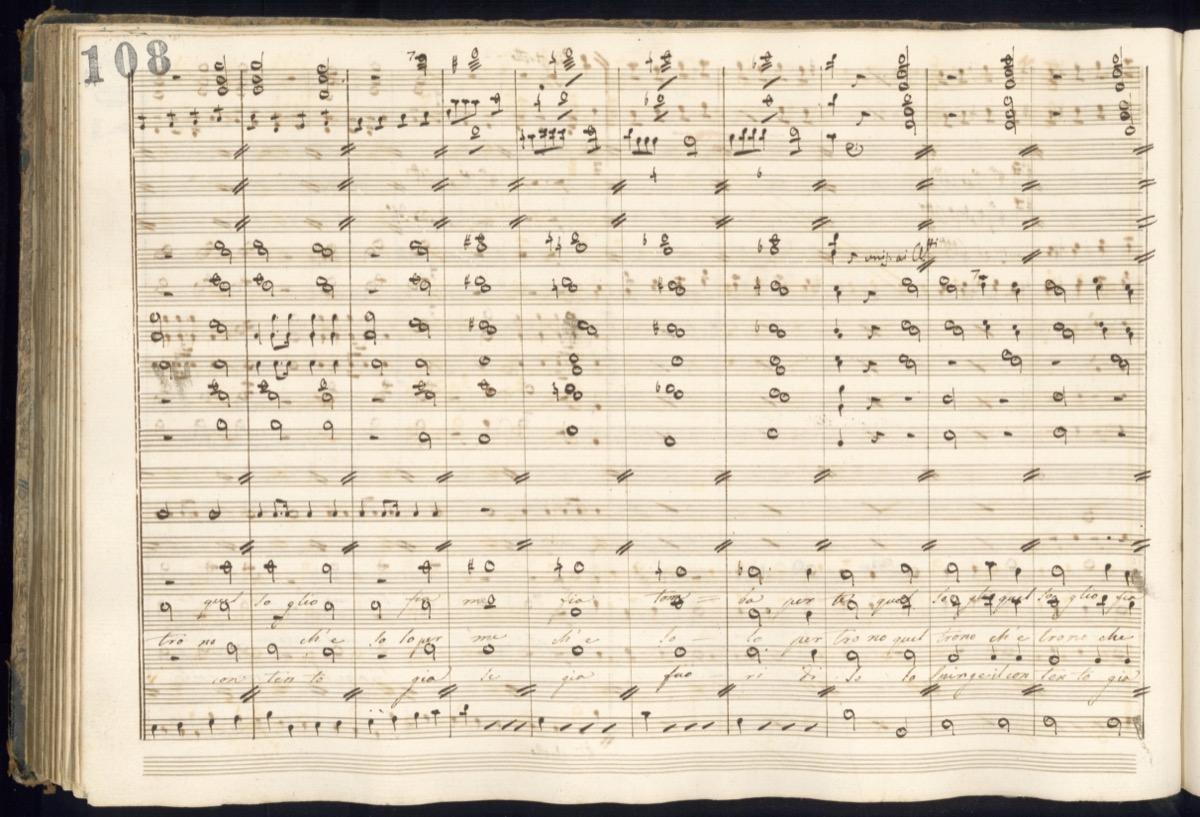 108
unis ai Clti
quel so glio fia me zia tom = ba per te quel so glio quel so glio fia
trono ch'e so lo per me ch'e so - lo per trono quel trono ch'e trono che
con ten to gia se gia fuo ri di se lo il con ten to gia